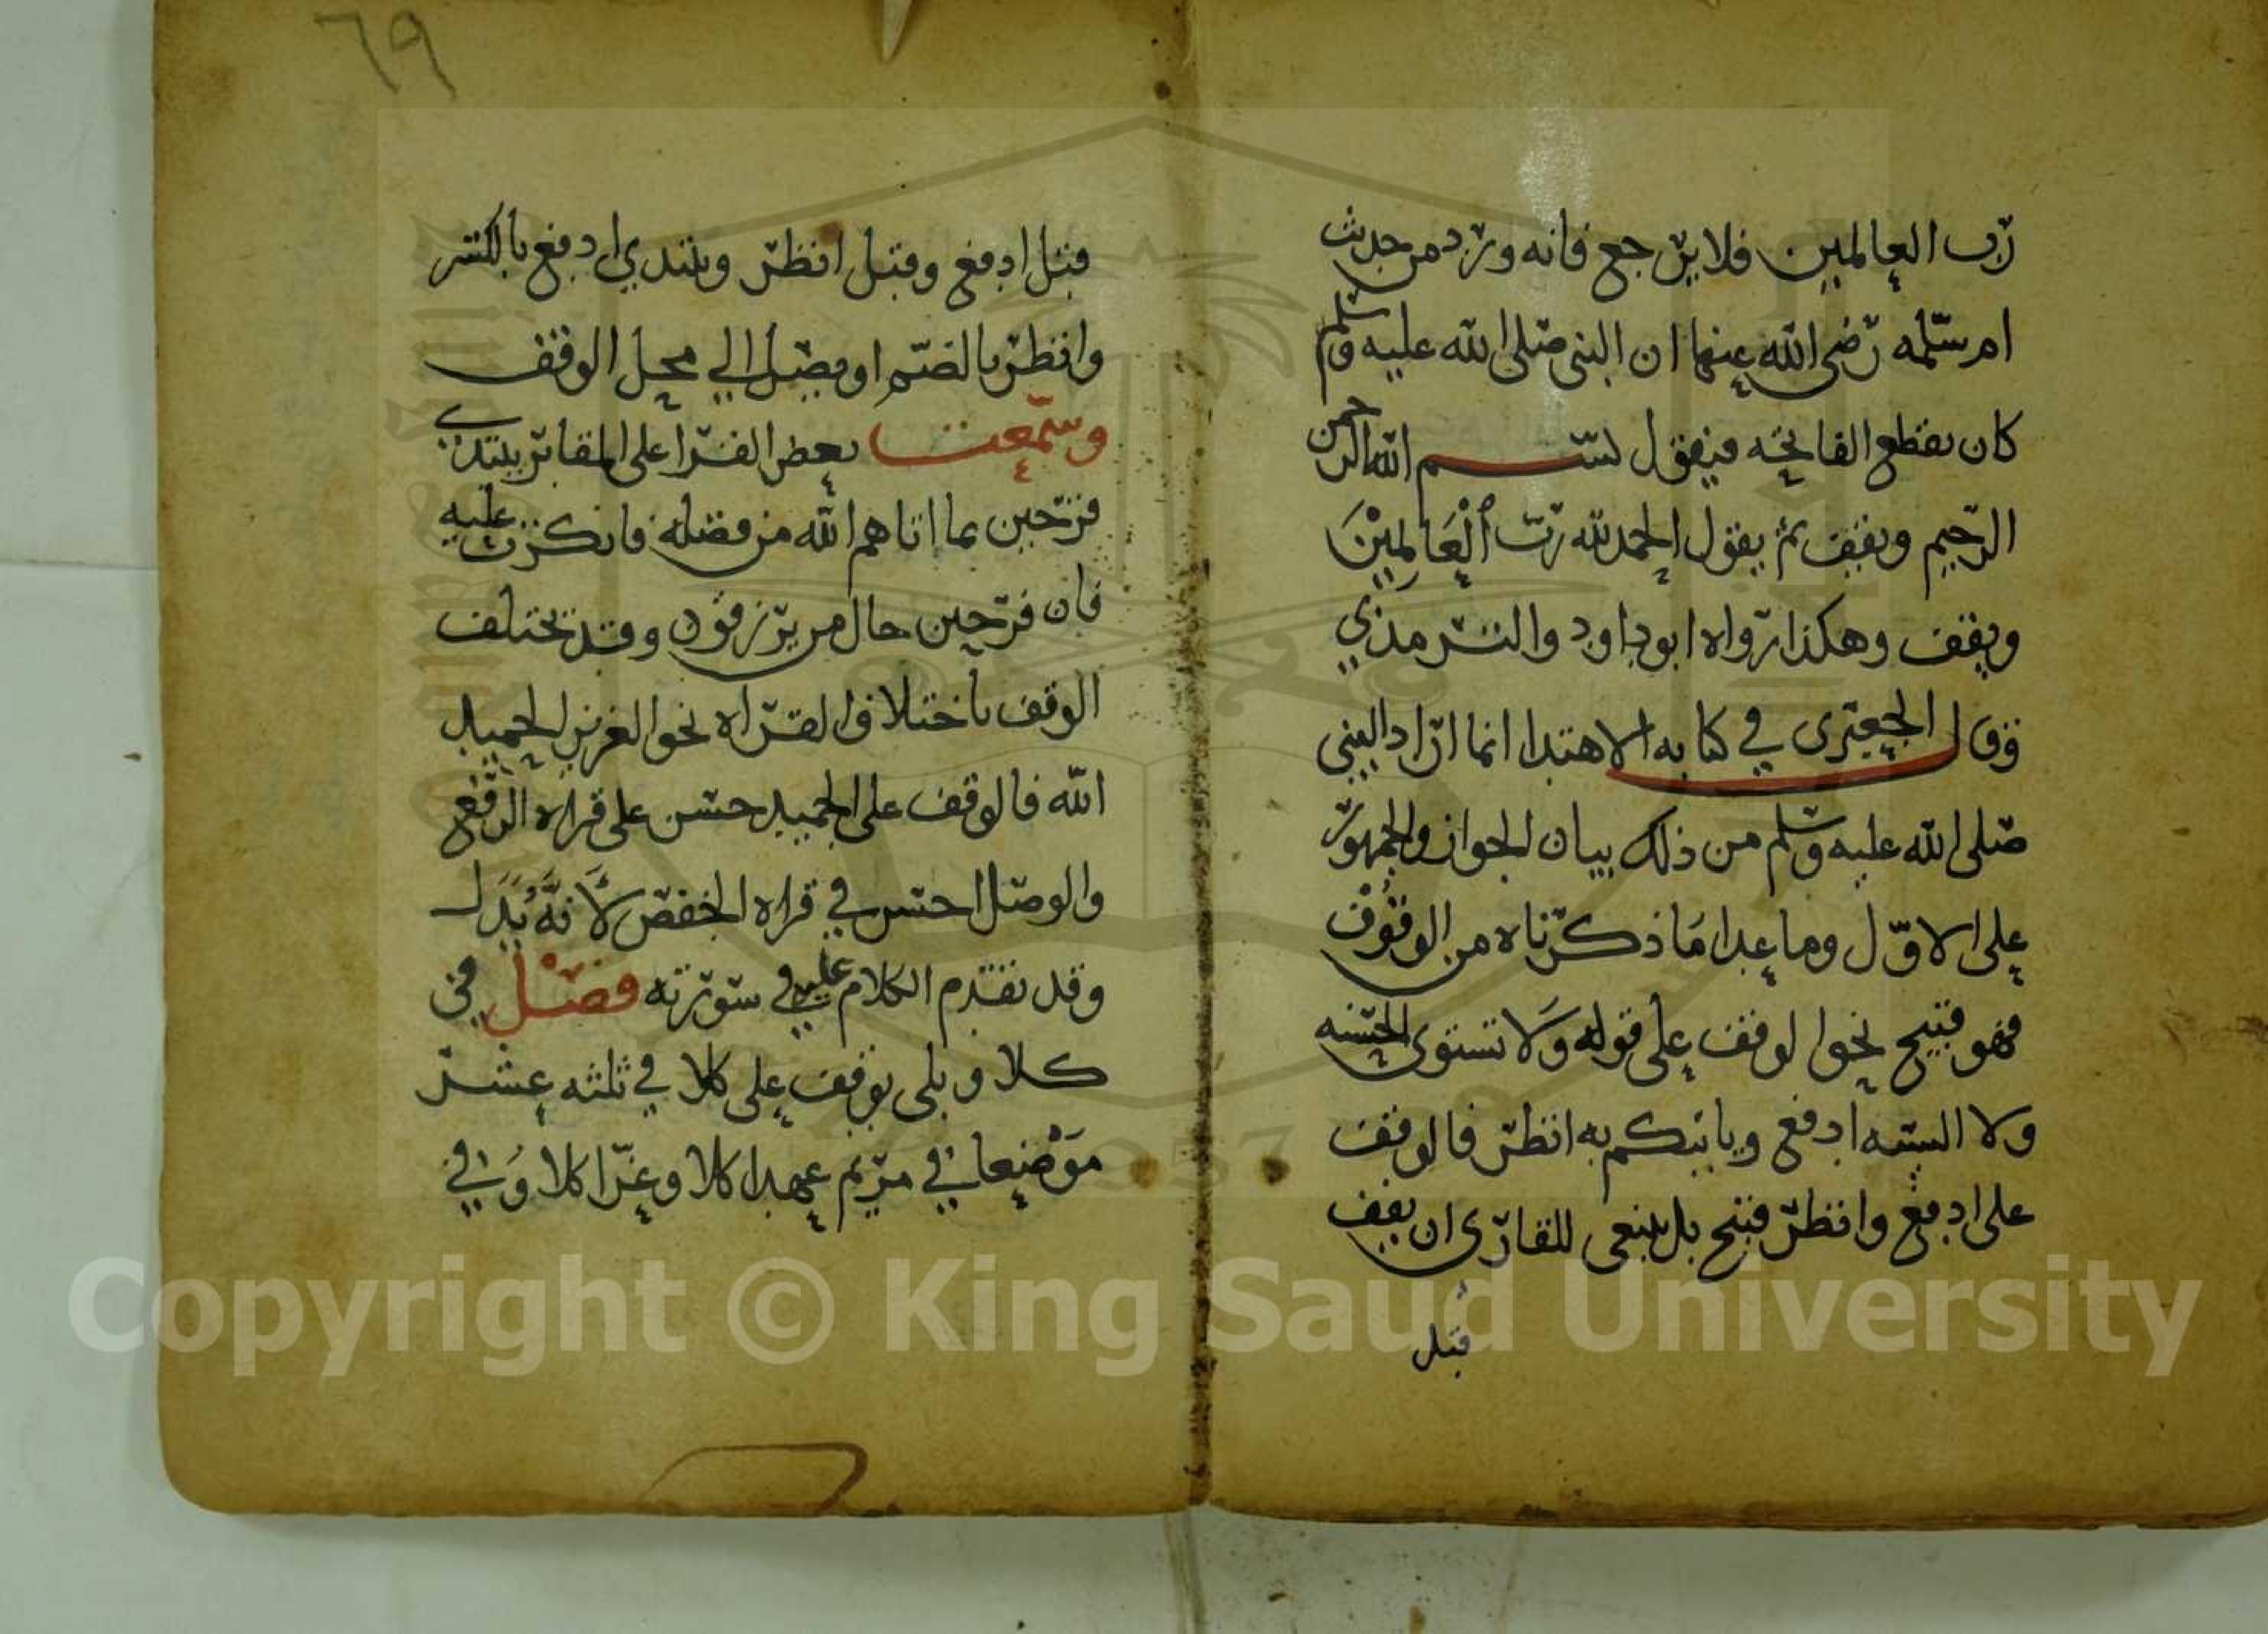 رب العالمين فلا يرجع فانه ورد من حديث
ام سلمه رضى الله عنها ان النبى صلى الله عليه وسلم
كان يقطع الفاتحه فيقول بسم الله الرحمن
الرحيم ويقف ثم يقول الحمد لله رب ٱلْعَالَمِيْنَ
ويقف وهكذا رواه ابو داود والترمذي
وقال الجعبرى في كتابه الاهتدا انما اراد النبي
صلى الله عليه وسلم من ذلك بيان الجواز والجمهور
على الاوّل وما عدا مَا ذكرناه من الوقُوْف
فهو قبيح نحو الوقف على قوله وَلا تستوى الحسنه
ولا السيه ادفع وياتيكم به انظر فالوقف
على ادفع وانظر قبيح بل ينبغى للقارى ان يقف
قبل
٦٩
قبل ادفع وقبل انظر ويبتدي ادفع بالكسر
وانظر بالضم او يصل الي محل الوقف
وسمعت بعض القرا على المقابر يبتدي
فرحين بما اتاهم الله من فضله فانكرت عليه
فان فرحين حال من يرزقون وقد يختلف
الوقف باختلاف القراه نحو العزيز الحميد
الله فالوقف على الحميد حسن على قراه الرفع
والوصل احسن في قراه الخفض لَأنَّهُ بَدَل
وقد تقدم الكلام عليه في سورته فصْل في
كلا وبلى يوقف على كلا في ثلثه عشر
مَوْضِعا في مريم عهدا كلا وعزّا كلا وَفي
Copyright © King Saud University
1957